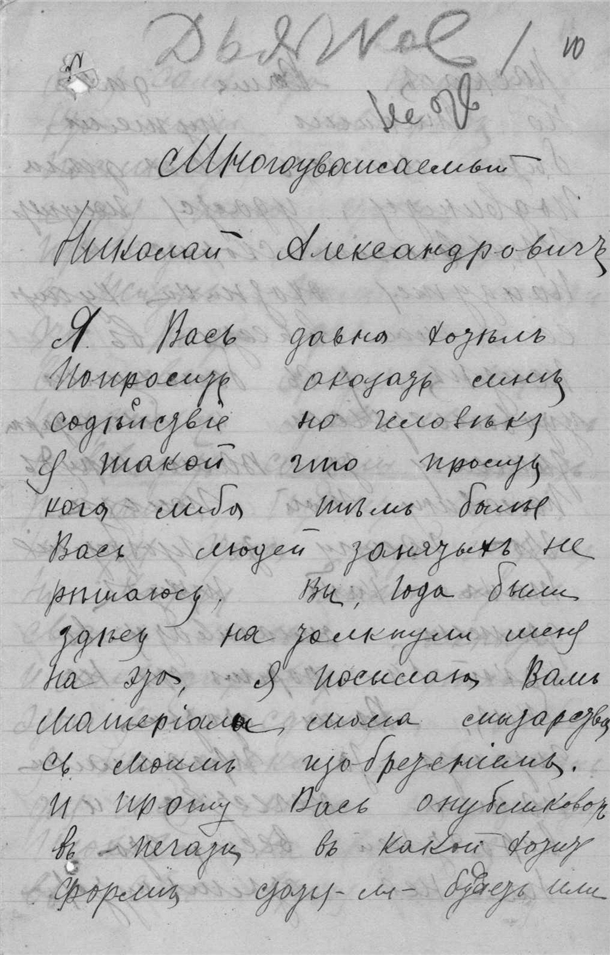 10
Многоуважаемый
Николай Александровичъ
Я Васъ давно хотѣлъ
попросить оказать мнѣ
содѣйствіе но человѣкъ
я такой что просить
кого либо тѣмъ болѣе
Васъ людей занятыхъ не
рѣшаюсь, Вы, года были
здѣсь на толкнули меня
на это, Я посылаю Вамъ
матеріалы моего мытарства
съ моимъ изобретеніемъ.
и прошу Васъ опубликовать
въ печати въ какой хотите
формѣ статья-ли-будетъ или